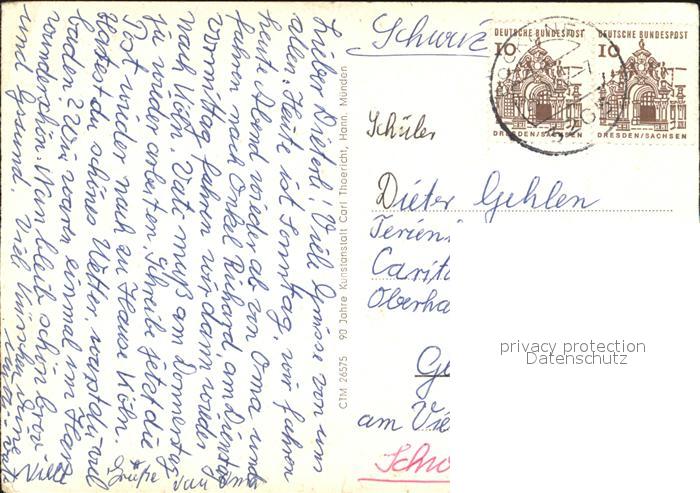 Lieber Dieter! Viele Grüsse von uns
allen. Heute ist Sonntag, wir fahren
heute Abend wieder ab von Oma und
fahren nach Onkel Richard, am Dienstag
vormittag fahren wir dann wieder
nach Köln. Vati muß am Donnerstag
zu wieder arbeiten. Schreibe jetzt die
Post wieder nach zu Hause Köln.
Hattest du schönes Wetter, warst du viel
baden? Wir waren einmal im
wunderschön. Nun bleib schön brav
und gesund. Viel
Viele Grüße von Oma
CTM 26575 90 Jahre Kunstanstalt Carl Thoericht, Hann. Münden
Schweiz
DEUTSCHE BUNDESPOST
10
DRESDEN/SACHSEN
DEUTSCHE BUNDESPOST
10
DRESDEN/SACHSEN
Schüler
Dieter Gehlen
Ferien
Carit
Oberha
Ge
am Vie
Schw
privacy protection
Datenschutz